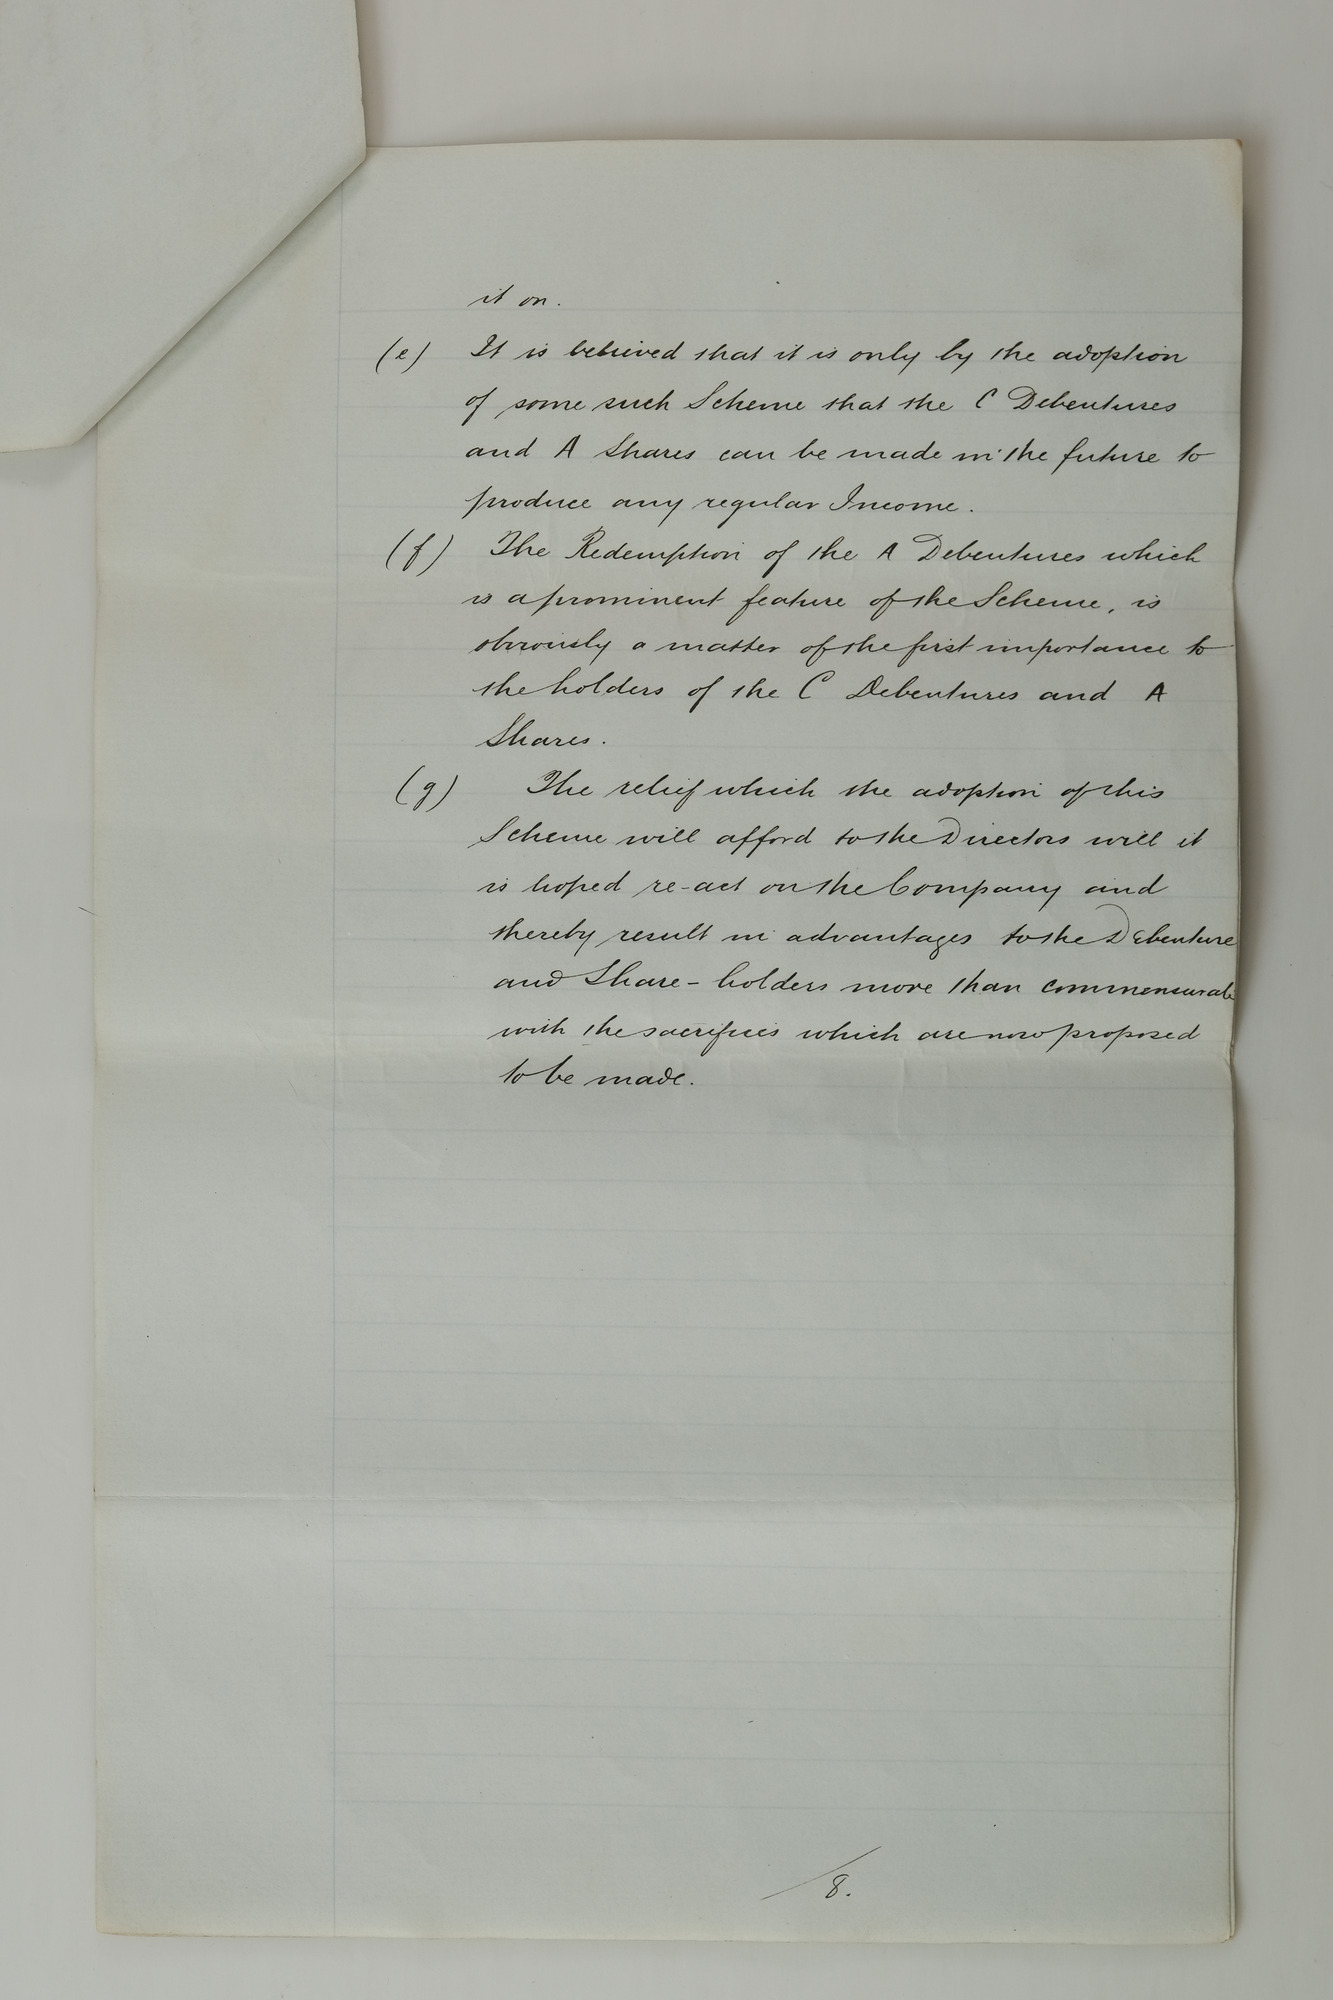 it on.
(e) It is believed that it is only by the adoption
of some such Scheme that the C Debentures
and A Shares can be made in the future to
produce any regular Income.
(f) The Redemption of the A Debentures which
is a prominent feature of the Scheme, is
obviously a matter of the first importance to
the holders of the C Debentures and A
Shares.
(g) The relief which the adoption of this
Scheme will afford to the Directors will it
is hoped re-act on the Company and
thereby result in advantages to the Debenture
and Share-holders more than commensurate
with the sacrifices which are now proposed
to be made.
8.